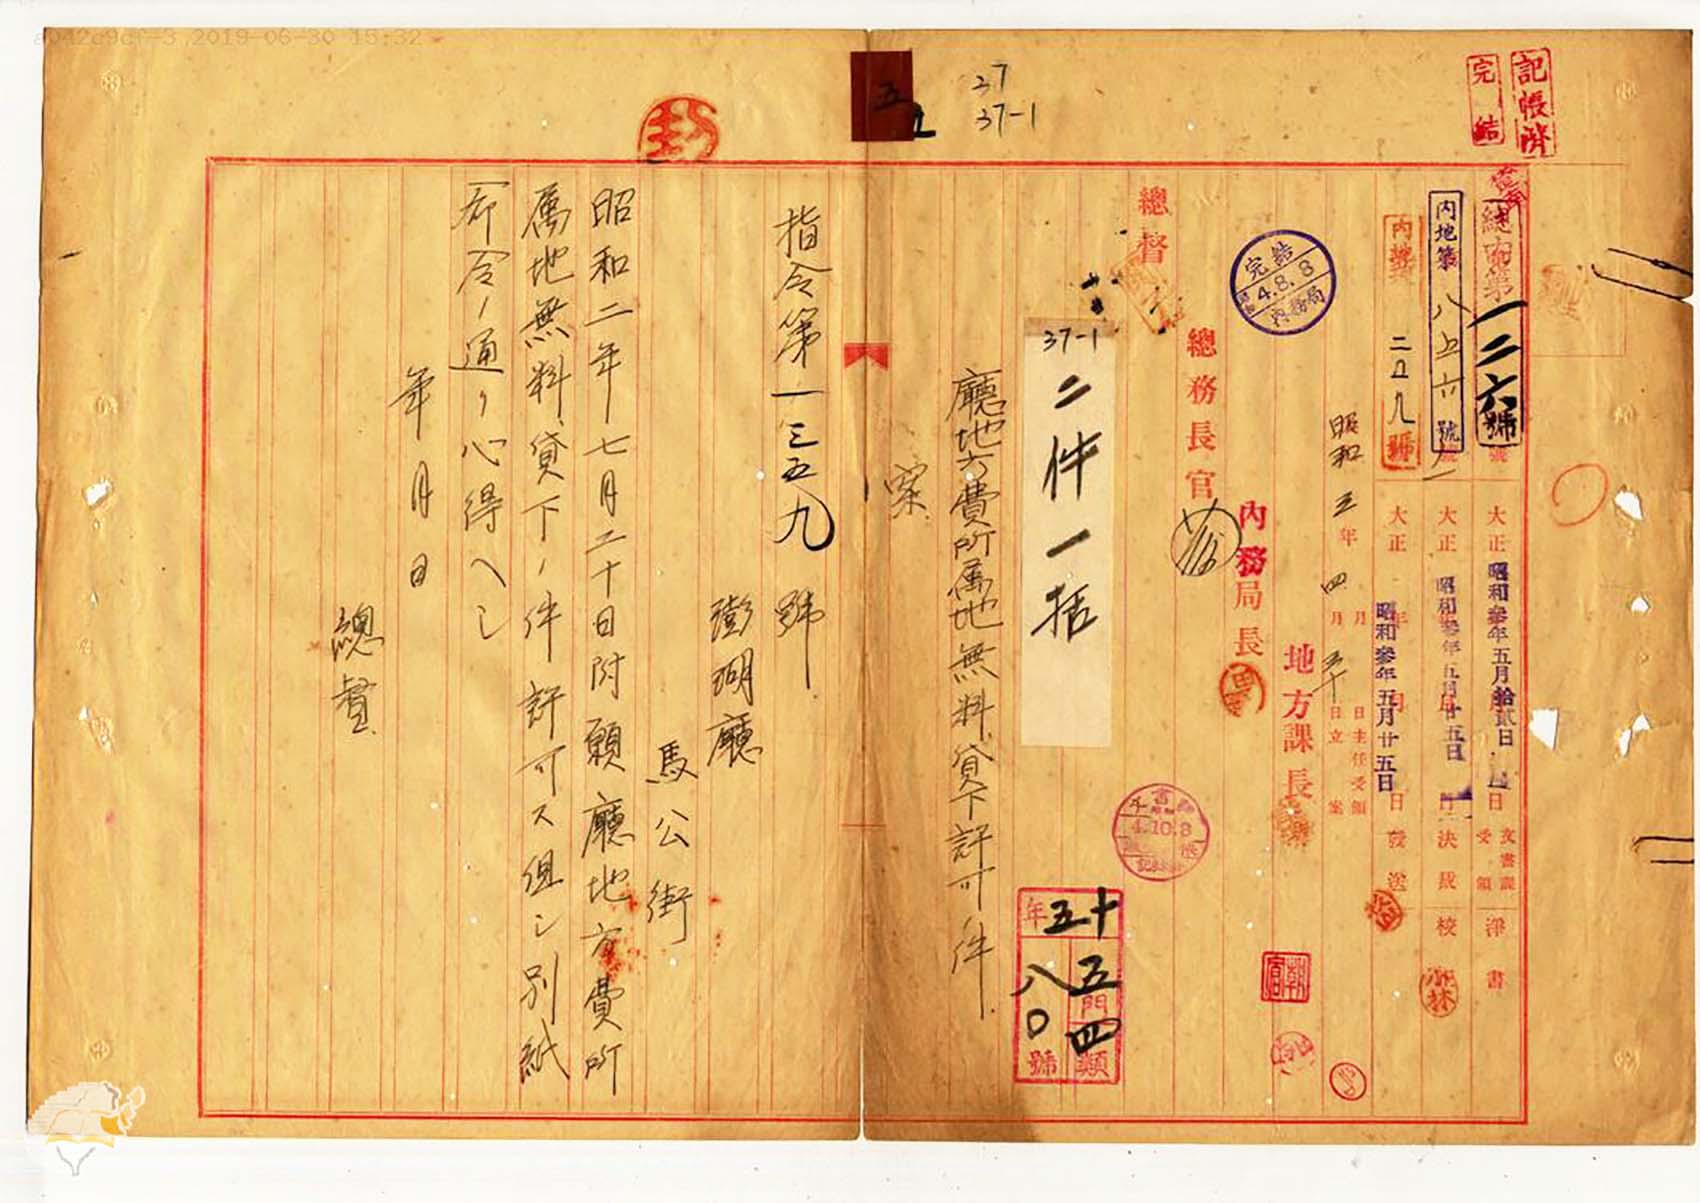 a042c9cf-3,2019-06-30 15:32
記帳濟
完結
37
37-1
五
封
一二六號
內地第八五六號
二五九號
大正
昭和參年五月拾貳日
文書課受領
淨書
大正
昭和參年五月廿五日
決裁
校
大正
昭和參年五月廿五日
發送
昭和
年
四月
日主任受領
日立案
地方課長
內務局長
總務長官
總督
完結
4.8.8
內務局
37-1
二件一括
4.10.8
十五年
五門
四類
八〇號
廳地方費所屬地無料貸下許可ノ件
案
指令第一三五九號
澎湖廳
馬公街
昭和二年七月二十日附願廳地方費所
屬地無料貸下ノ件許可ス但シ別紙
命令ノ通リ心得ヘシ
年月日
總督